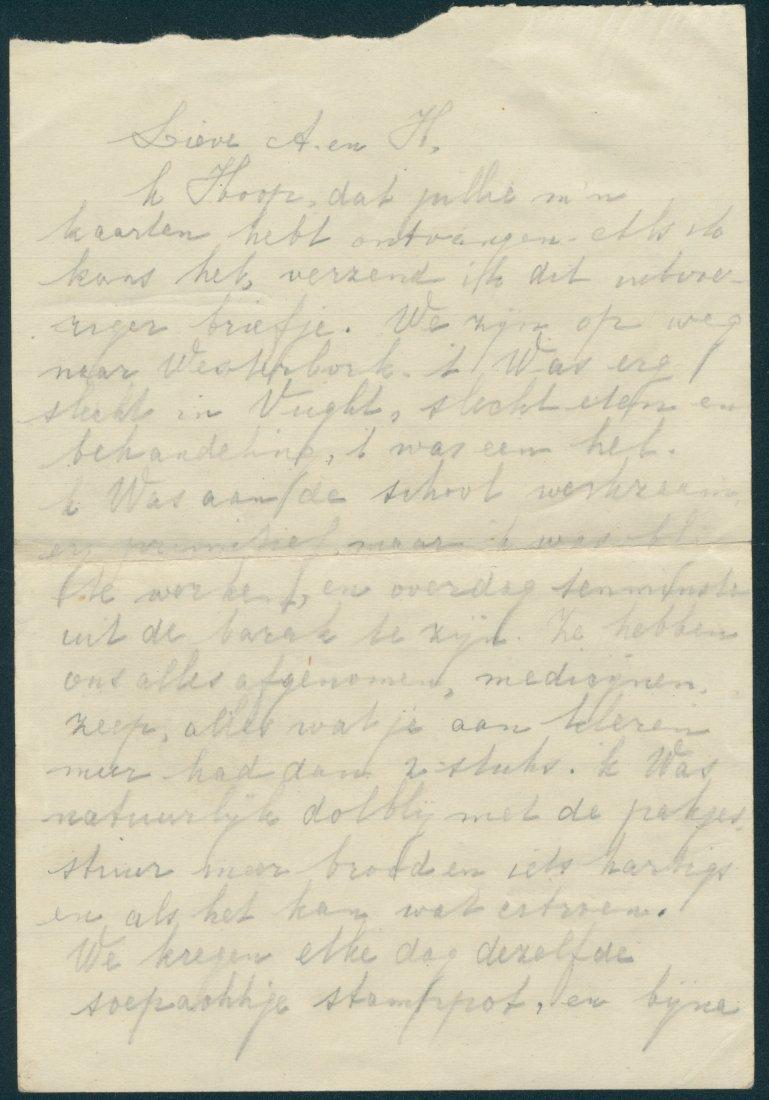 Lieve A. en H,
k Hoop, dat jullie m'n
kaarten hebt ontvangen. Als ik
kans heb, verzend ik dit uitvoe-
riger briefje. We zijn op weg
naar Westerbork. 't Was erg
slecht in Vught, slecht eten en
behandeling, 't was een hel.
k Was aan de school werkzaam,
erg primitief, maar ik was bl
te werken, en overdag tenminste
uit de barak te zijn. Ze hebben
ons alles afgenomen, medicijnen,
zeep, alles wat je aan kleren
meer had dan 2 stuks. k Was
natuurlijk dolblij met de pakjes.
stuur meer brood en iets hartigs
en als het kan wat citroen.
We kregen elke dag dezelfde
soepachtige stamppot, en bijna